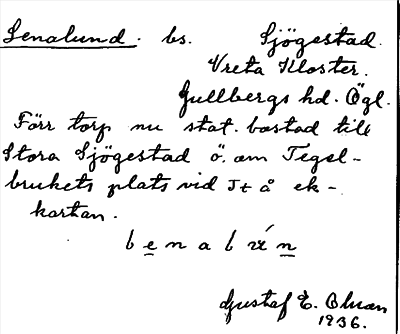 Lenalund. bs. Sjögestad.
Vreta Kloster.
Gullbergs hd. Ögl.
Förr torp nu stat. bostad till
Stora Sjögestad ö. om Tegel-
brukets plats vid St å ek-
kartan.
Gustaf E. Olman
1936.